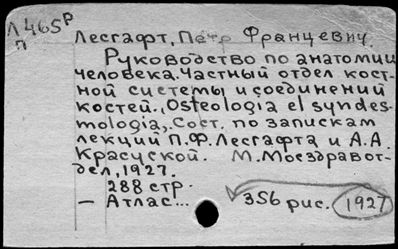 Л 465 Р
П
Лесгафт, Петр Францевич.
Руководство по анатомии
человека. Частный отдел кост-
ной системы и соединений
костей. "Osteologia el syndes-
mologia". Сост. по запискам
лекций П.Ф. Лесгафта и А.А.
Красуской. М. Мосздравот-
дел, 1927.
288 стр.
— Атлас... 356 рис. 1927